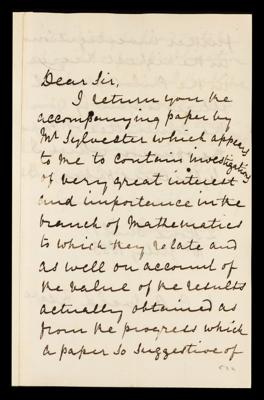 Dear Sir,
I return you the
accompanying paper by
Mr Sylvester which appears
to me to contain investigations
of very great interest
and importance in the
branch of Mathematics
to which they relate and
as well on account of
the value of the results
actually obtained as
from the progress which
a paper so suggestive of